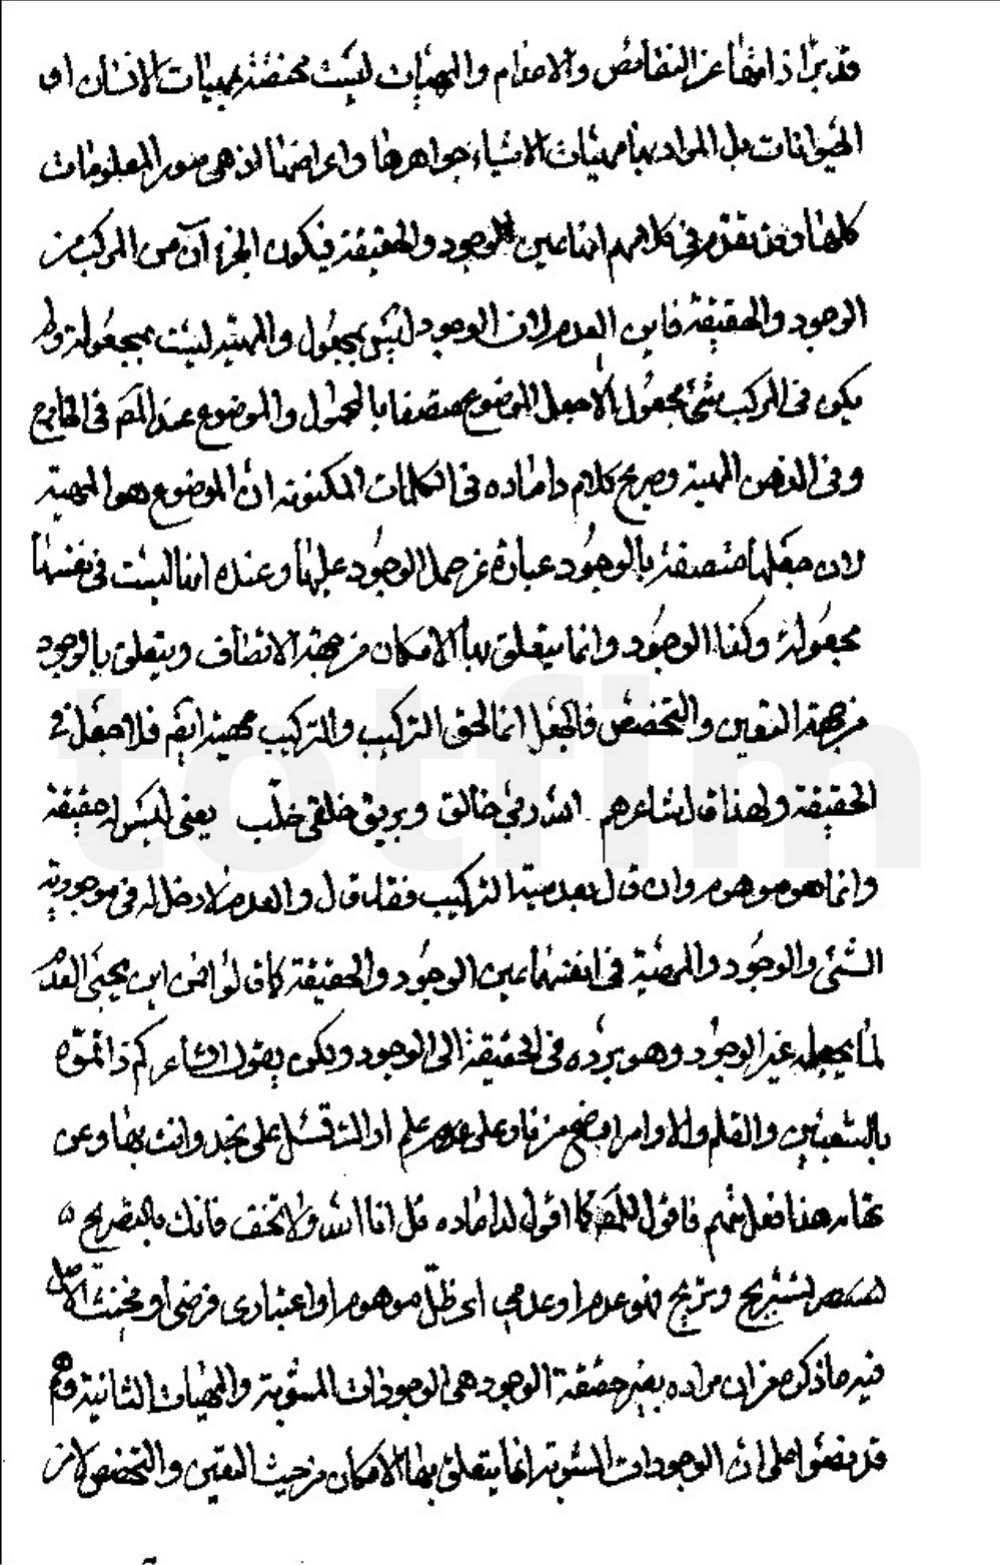 قد برّ اذا منها عن النقائص والاعدام والمهيات ليست مختصة بمهيات الانسان او
الحيوانات بل المراد بها مهيات الاشياء جواهرها واعراضها اذ هى صور المعلومات
كلها وقد تقدم فى كلامهم انها عين الوجود والحقيقة فيكون الجزء آن من المركب من
الوجود والحقيقة فاين العدم لان الوجود ليس بمجعول والمهية ليست بمجعولة ولم
يكن فى المركب شئ مجعول الا جعل الموضوع متصفا بالمحمول والموضوع عند المص فى الخارج
وفى الذهن المهية وصريح كلام داماده فى الكلمات المكنونه ان الموضوع هو المهية
لان جعلها متصفة بالوجود عبارة عن حمل الوجود عليها وعنده انها ليست فى نفسها
مجعولة وكذا الوجود وانما يتعلق بها الامكان من جهة الاتصاف ويتعلق بالوجود
من جهة التعين والتخصص فالجعل انما لحق التركيب والتركيب مهية ايضا فلا جعل فى
الحقيقة ولهذا قال شاعرهم الله ربى خالق وبريق خلقى خلّب يعنى ليس له حقيقة
وانما هو موهوم وان قال بعدمية التركيب فقد قال والعدم لا دخل له فى موجودية
الشئ والوجود والمهية فى انفسهما عين الوجود والحقيقة كما قال
لما يجعله غير الوجود وهو يرده فى الحقيقة الى الوجود ويكون يقول الشاعر كم ذا تموّه
بالشعبين والعلم والامر اوضح من نار على علم اراك تسئل عن نجد وانت بها وعن
تهامة هذا فعل متهم فاقول للمص كما اقول لداماده قل انا الله ولا تخف فانك بالتصريح
تستريح وتريح فهو عدم او عدمى اى ظلّ موهوم او اعتبارى فرضى او مخبث الاصل
فيه ما ذكر من ان مراده بغير حقيقة الوجود هى الوجودات المشوبة والمهيات الثانية وهم
قد نصوا على ان الوجودات المشوبة انما يتعلق بها الامكان من حيث التعين والتخصص لا من
totfim